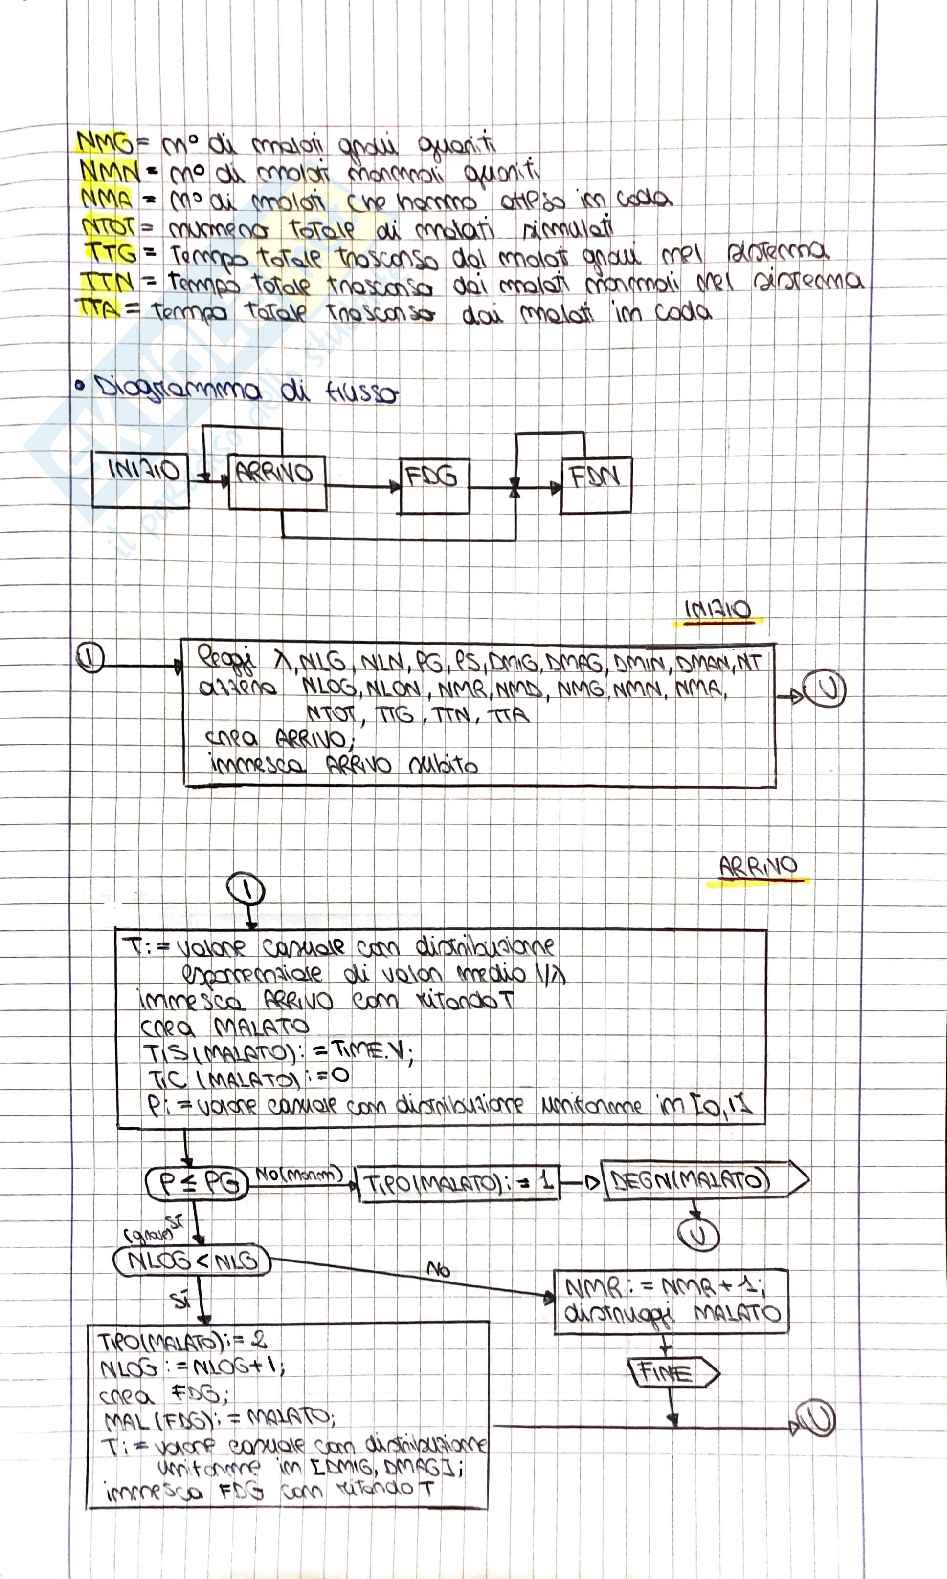 NMG = n° di malati gravi guariti
NMN = n° di malati normali guariti
NMA = n° di malati che hanno atteso in coda
NTOT = numero totale di malati simulati
TTG = tempo totale trascorso dai malati gravi nel sistema
TTN = tempo totale trascorso dai malati normali nel sistema
TTA = tempo totale trascorso dai malati in coda
• Diagramma di flusso
INIZIO
ARRIVO
FDG
FDN
INIZIO
1
leggi λ, NLG, NLN, PG, PS, DMIG, DMAG, DMIN, DMAN, NT
azzera NLOG, NLON, NMR, NMD, NMG, NMN, NMA,
NTOT, TTG, TTN, TTA
crea ARRIVO;
immesca ARRIVO subito
U
ARRIVO
1
T := valore casuale con distribuzione
esponenziale di valor medio 1/λ
immesca ARRIVO con ritardo T
crea MALATO
TIS(MALATO) := TIME.V;
TIC(MALATO) := 0
P := valore casuale con distribuzione uniforme in [0,1]
P ≤ PG
No (norm)
TIPO(MALATO) := 1
DEGN(MALATO)
(grave) sì
U
NLOG < NLG
No
NMR := NMR + 1;
distruggi MALATO
sì
TIPO(MALATO) := 2
NLOG := NLOG + 1;
crea FDG;
MAL(FDG) := MALATO;
T := valore casuale con distribuzione
uniforme in [DMIG, DMAG];
immesca FDG con ritardo T
FINE
U